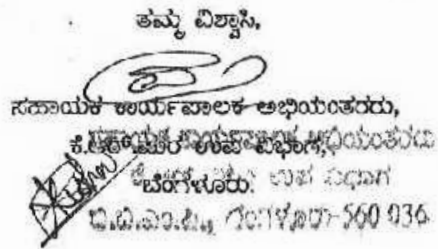 ತಮ್ಮ ವಿಶ್ವಾಸಿ,
ಸಹಾಯಕ ಕಾರ್ಯಪಾಲಕ ಅಭಿಯಂತರರು,
ಕೆ.ಆರ್ ಪುರ ಉಪ ವಿಭಾಗ,
ಸಹಾಯಕ ಕಾರ್ಯಪಾಲಕ ಅಭಿಯಂತರರು
ಬೆಂಗಳೂರು.
ಉಪ ವಿಭಾಗ
ಬಿ.ಬಿ.ಎಂ.ಪಿ., ಬೆಂಗಳೂರು-560 036